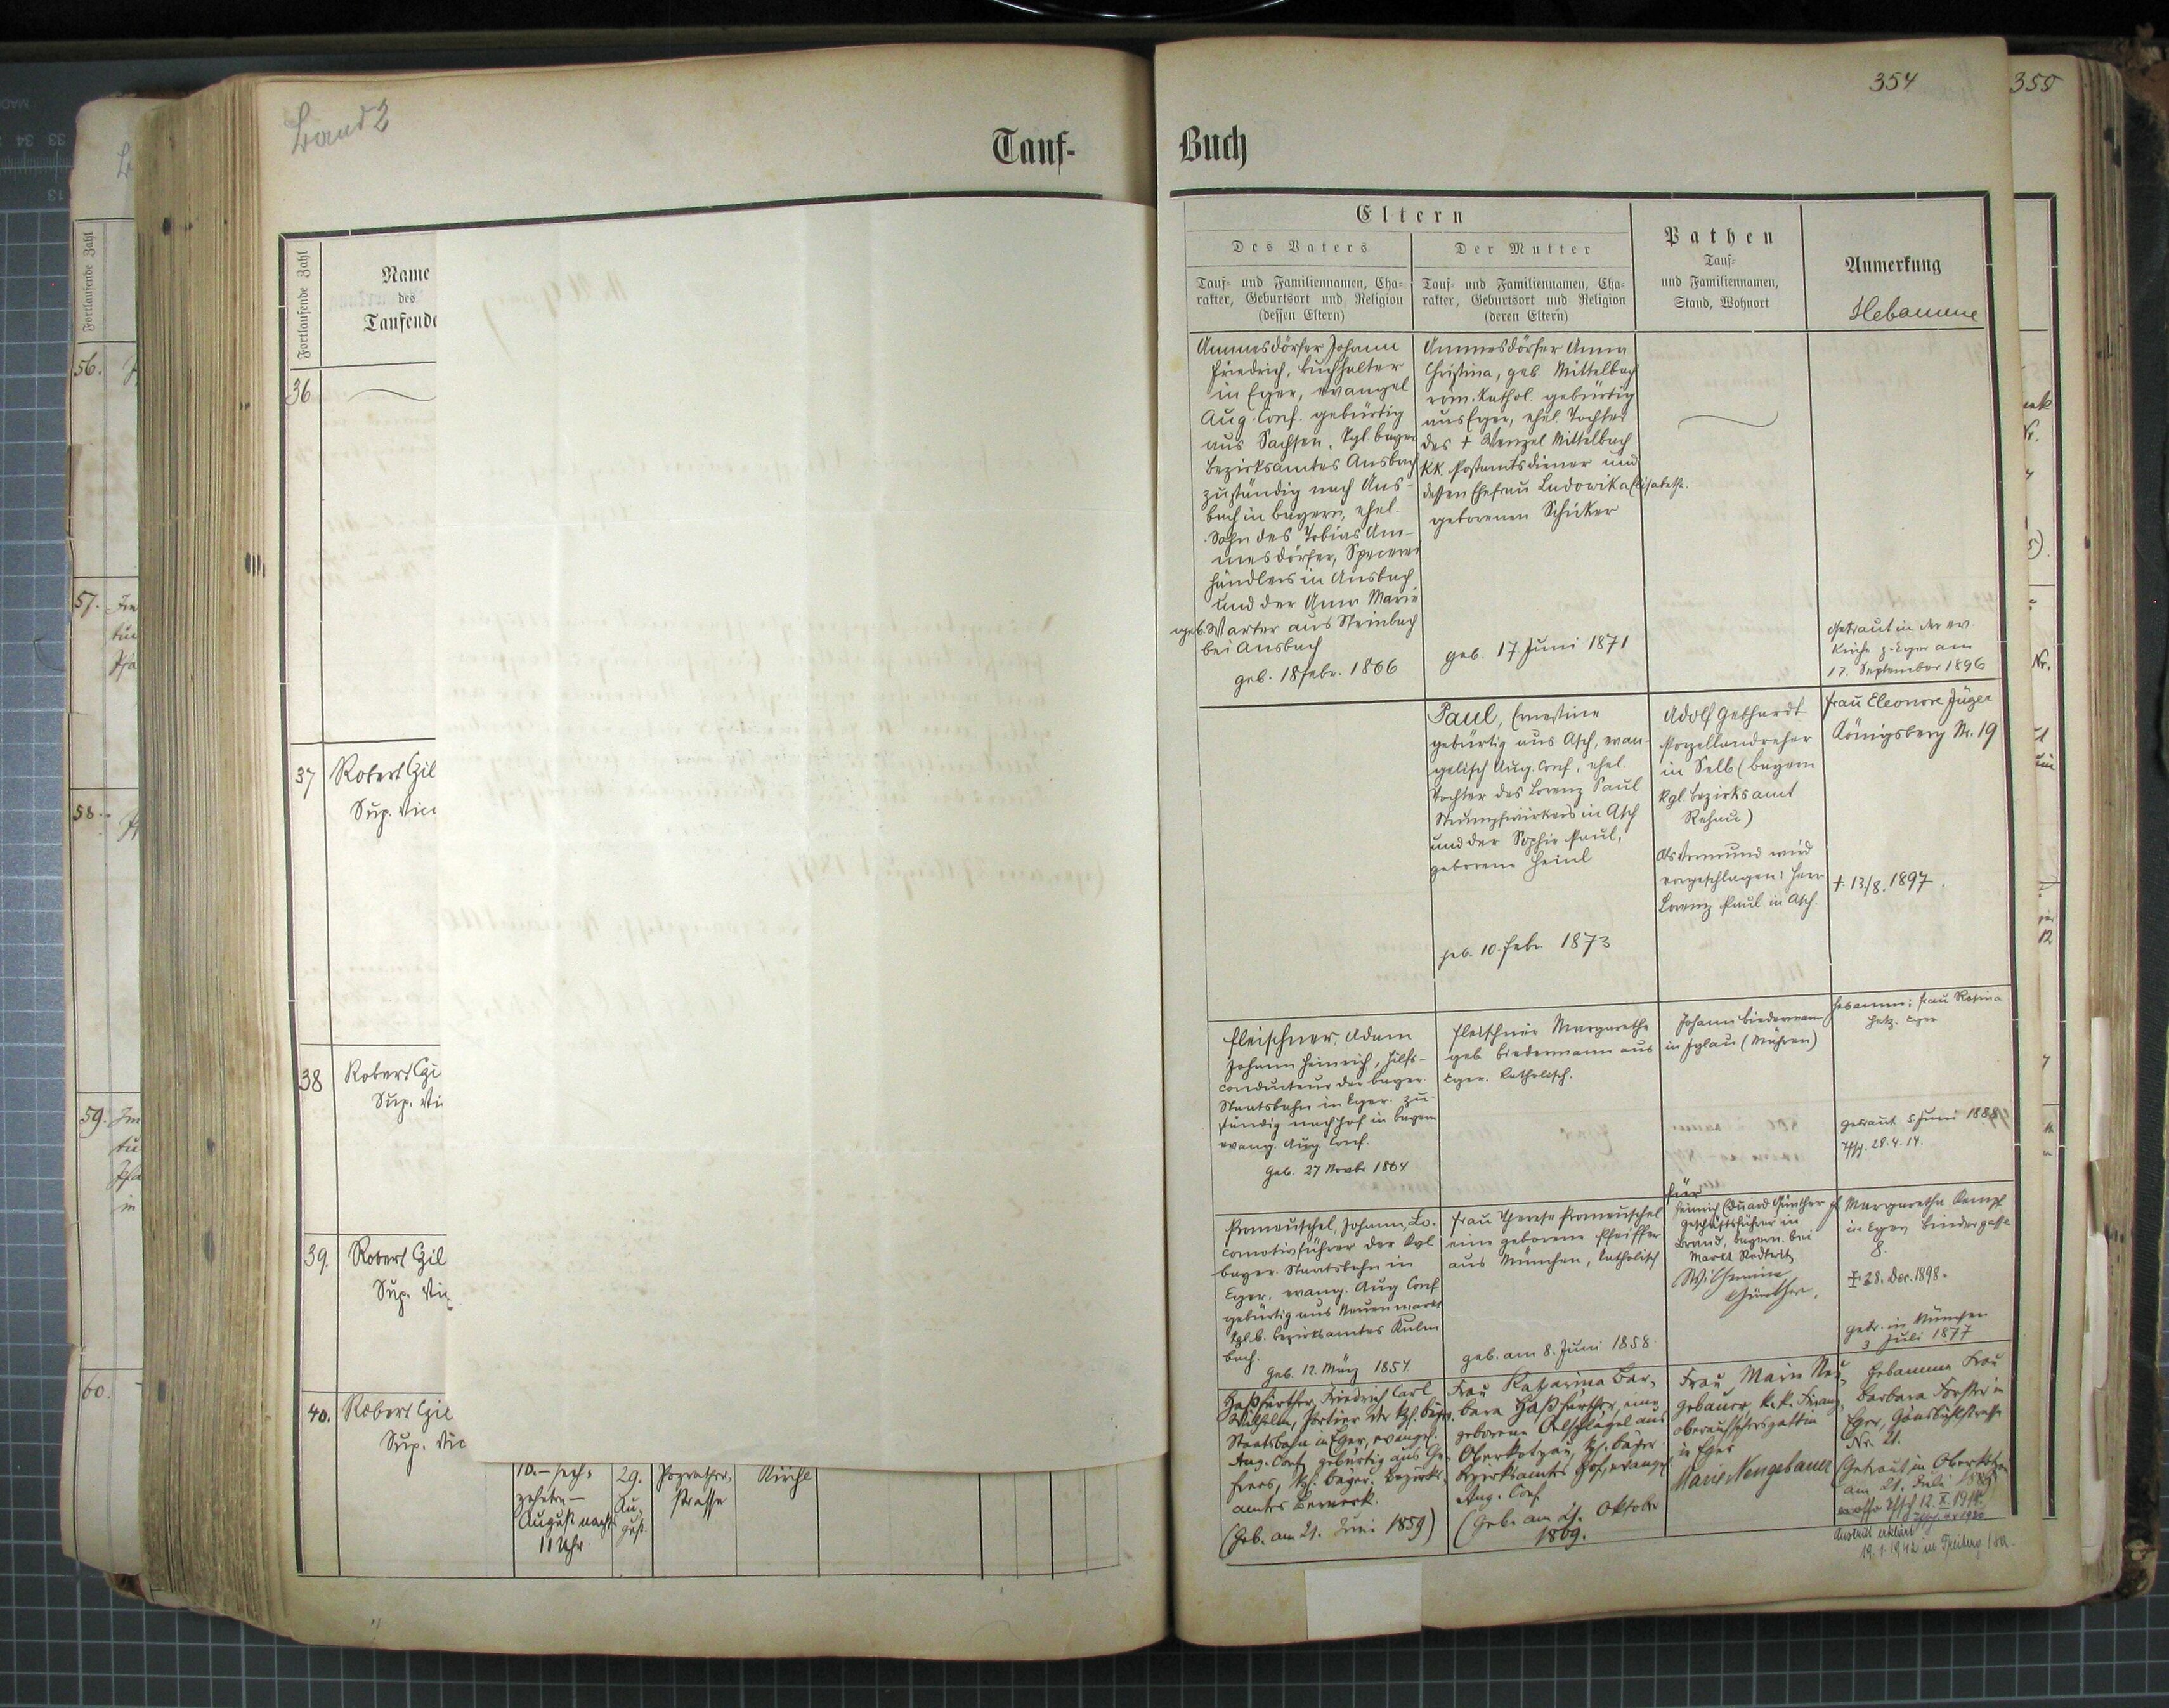 Band 2
Tauf-
Fortlaufende Zahl
Name
des
Taufende
36
37 Robert Gil
Sup. Vic
38 Robert Gi
Sup. Vi
39. Robert Gil
Sup. Vi
40. Robert Gil
Sup. Vic
10. – sech-
zehnten –
August nachts
11 Uhr
29.
Au-
gust.
Pograther-
strasse
Kirche
Fortlaufende Zahl
56.
57.
58.
59.
60.
354
355
Buch
Eltern
Des Vaters
Tauf- und Familiennamen, Cha-
rakter, Geburtsort und Religion
(dessen Eltern)
Der Mutter
Tauf- und Familiennamen, Cha-
rakter, Geburtsort und Religion
(deren Eltern)
Pathen
Tauf-
und Familiennamen,
Stand, Wohnort
Anmerkung
Hebamme
Ammesdörfer Johann
Friedrich, Buchhalter
in Eger, evangel
Aug. Conf. gebürtig
aus Sachsen, kgl. bayer
Bezirksamtes Ansbach
zuständig nach Ans-
bach in Bayern, ehel.
Sohn des Tobias Am-
mesdörfer, Specerei
händlers in Ansbach
und der Anna Marie
geb. Warter aus Steinbach
bei Ansbach
geb. 18 Febr. 1866
Ammesdörfer Anna
Christina, geb. Mittelbach
röm. kathol. gebürtig
aus Eger, ehel. Tochter
des † Wenzel Mittelbach
kk. Postamtsdiener und
dessen Ehefrau Ludowika Elisabeth.
geborenen Schicker
geb. 17 Juni 1871
Getraut in der ev.
Kirche z. Eger am
17. September 1896
Paul, Ernestine
gebürtig aus Asch, evan-
gelisch Aug. Conf., ehel.
Tochter des Lorenz Paul
Strumpfwirkers in Asch
und der Sophie Paul,
geborene Heinl
geb. 10. Febr. 1873
Adolf Gebhardt
Porzellandreher
in Selb (Bayern
kgl. Bezirksamt
Rehau)
Als Vormund wird
vorgeschlagen: Herr
Lorenz Paul in Asch.
Frau Eleonore Jäger
Königsberg Nr. 19
† 13/8. 1897.
Fleischner, Adam
Johann Heinrich, Hilfs-
conducteur der bayer.
Staatsbahn in Eger. zu-
ständig nach Hof in Bayern
evang. Aug. Conf.
Geb. 27 Novbr 1864
Fleischner Margarethe
geb. Biedermann aus
Eger. katholisch.
Johann Biedermann
in Iglau (Mähren)
Hebamme: Frau Rosina
Hetz. Eger
getraut 5 Juni 1888
28. 4. 14.
Johann, Lo-
comotivführer der kgl
bayer. Staatsbahn in
Eger. evang. Aug Conf
gebürtig aus Neuenmarkt
kgl. b. Bezirksamtes Kulm
bach.
Geb. 12. März 1854
Frau Therese
eine geborene Pfeiffer
aus München, katholisch
geb. am 8. Juni 1858.
Für
Heinrich Eduard Günther
Geschäftsführer in
Brand, Bayern. bei
Markt Redwitz
Wilhemine
Günther.
Margaretha Kempf
in Eger Bindergasse
8.
‡ 28. Dec. 1898.
getr. in München
3 Juli 1877
Haßfürther, Friedrich Carl
Wilhelm, Portier der kgl. bayr.
Staatsbahn in Eger, evangel.
Aug. Conf, gebürtig aus Ge-
frees, kgl. bayer. Bezirks-
amtes Berneck.
(Geb. am 21. Juni 1859)
Frau Katharina Bar-
bara Haßfürther, eine
geborene Oelschlägel aus
Oberkotzau, kgl. bayer.
Bezirksamtes Hof, evangel.
Aug. Conf
(Geb. am 21. Oktober
1869.
Frau Marie Neu-
gebauer, k. k. Finanz-
oberaufsehersgattin
in Eger
Marie Neugebauer
Hebamme Frau
Barbara Forster in
Eger, Gänsbühlstrasse
Nr. 21.
(Getraut in Oberkotzau
am 21. Juli
12. X. 1918.
Austritt erklärt
19. 1. 1942 in Freiberg / Sa.